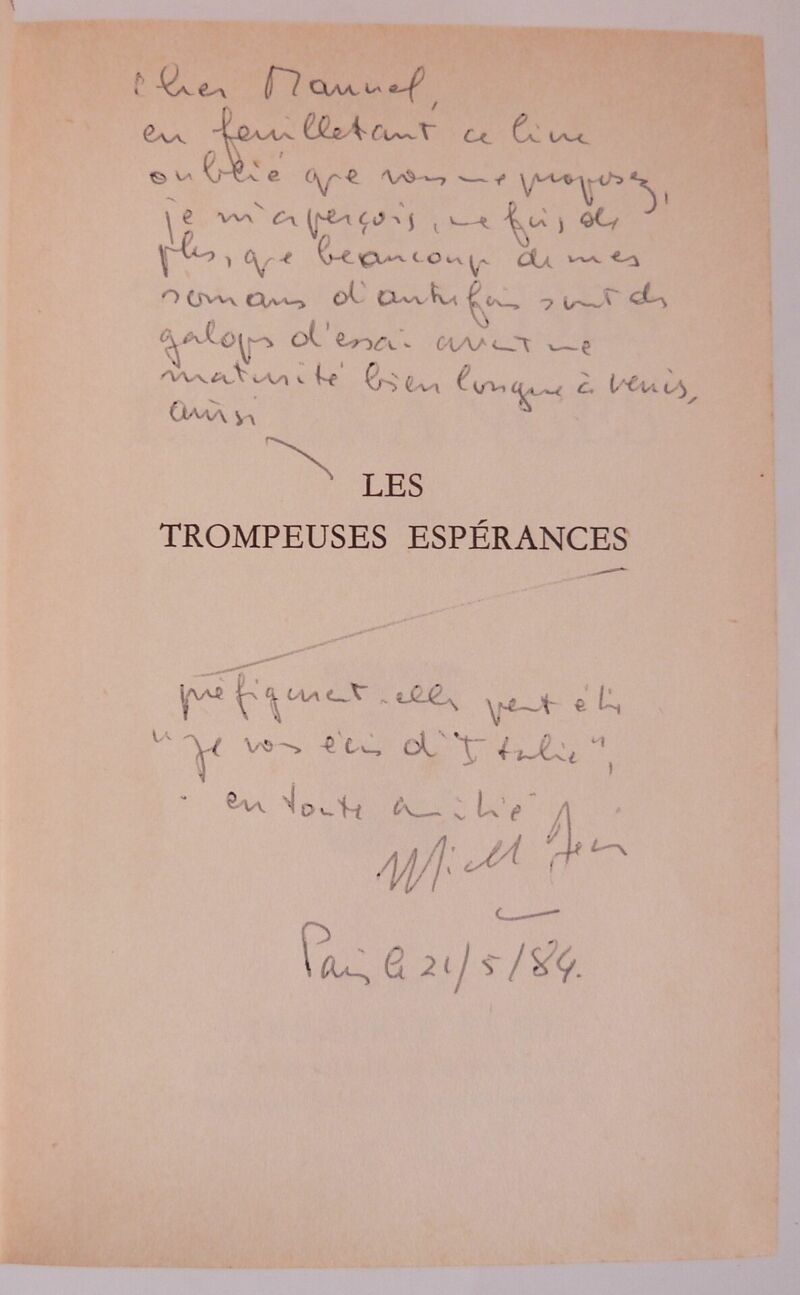 Cher Manuel,
en feuilletant ce livre
oublié que vous me proposez,
je m'aperçois, une fois de
plus, que beaucoup de mes
romans d'autrefois sont des
galops d'essai avant une
maturité bien longue à venir,
ainsi
LES
TROMPEUSES ESPÉRANCES
préfigurent-elles peut être
"Je vous écris d'Italie",
en toute amitié
Michel Déon
Paris le 21/5/84.